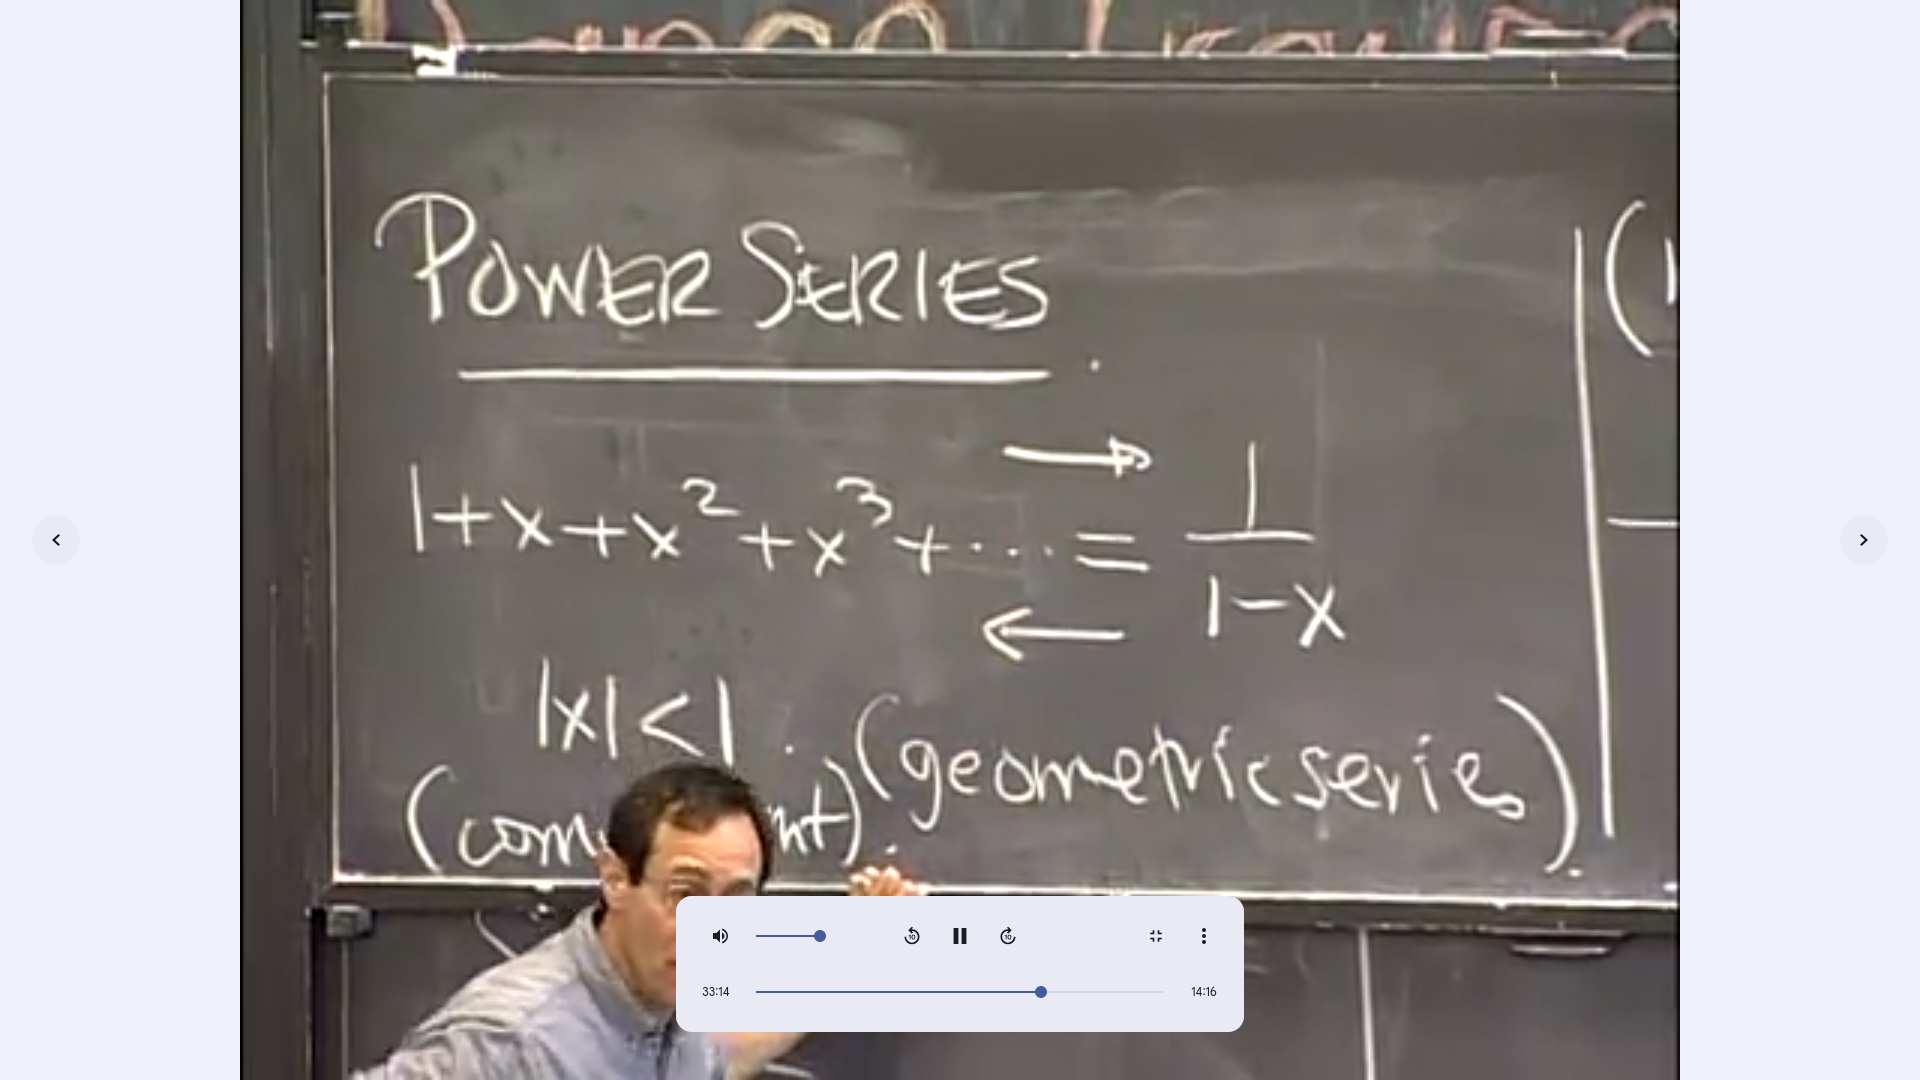 POWER SERIES
1+x+x²+x³+... = 1/(1-x)
|x|<1.
(geometric series).
33:14
14:16